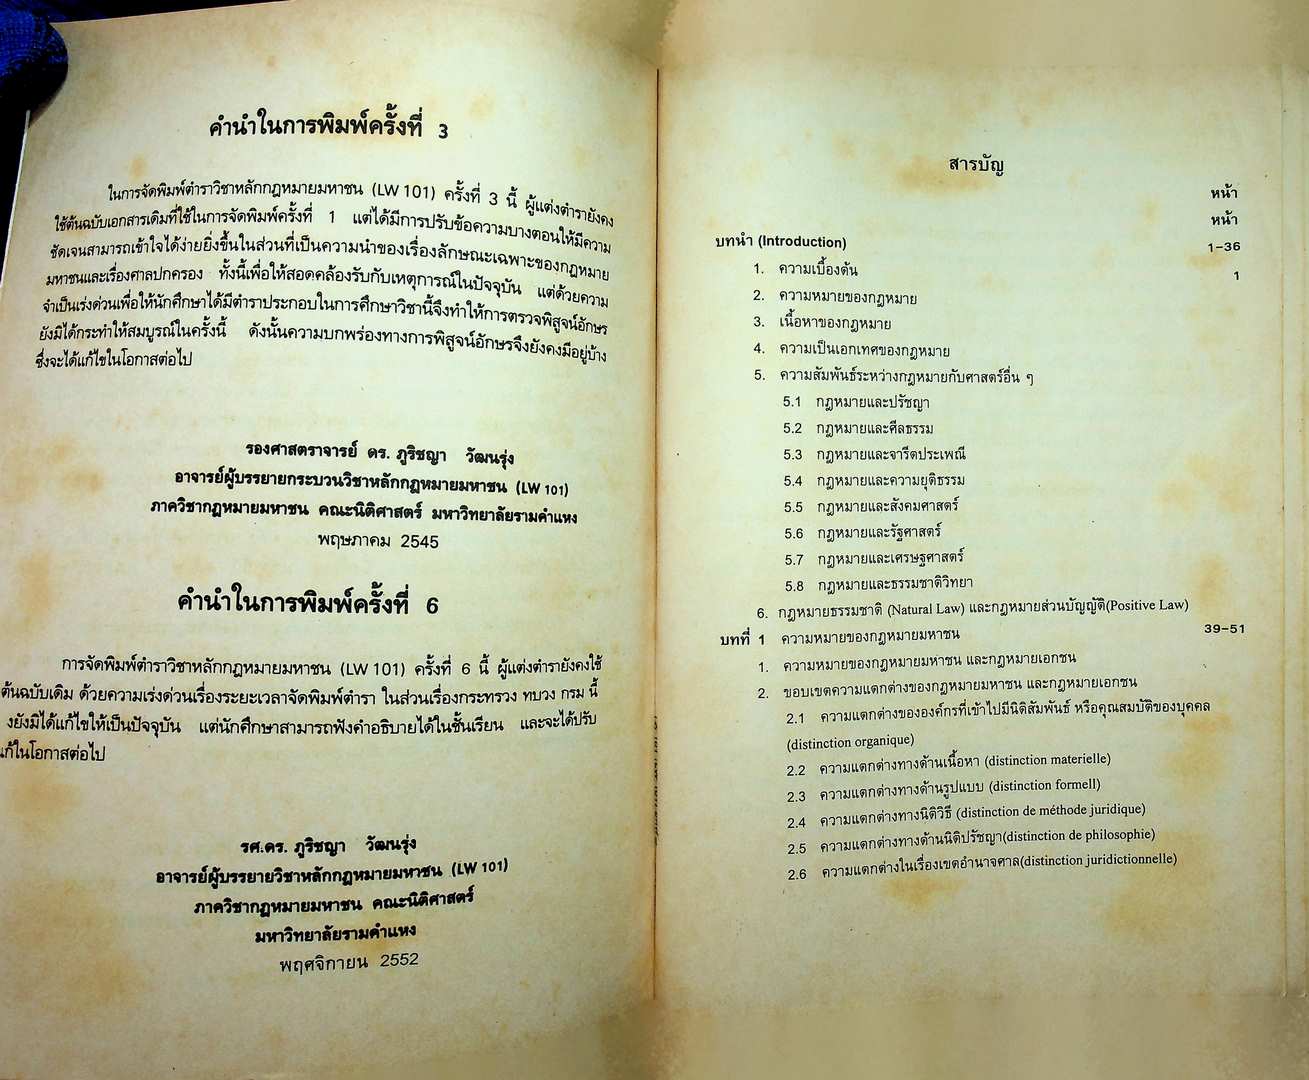 คำนำในการพิมพ์ครั้งที่ 3
ในการจัดพิมพ์ตำราวิชาหลักกฎหมายมหาชน (LW 101) ครั้งที่ 3 นี้ ผู้แต่งตำรายังคง
ใช้ต้นฉบับเอกสารเดิมที่ใช้ในการจัดพิมพ์ครั้งที่ 1 แต่ได้มีการปรับข้อความบางตอนให้มีความ
ชัดเจนสามารถเข้าใจได้ง่ายยิ่งขึ้นในส่วนที่เป็นความนำของเรื่องลักษณะเฉพาะของกฎหมาย
มหาชนและเรื่องศาลปกครอง ทั้งนี้เพื่อให้สอดคล้องรับกับเหตุการณ์ในปัจจุบัน แต่ด้วยความ
จำเป็นเร่งด่วนเพื่อให้นักศึกษาได้มีตำราประกอบในการศึกษาวิชานี้จึงทำให้การตรวจพิสูจน์อักษร
ยังมิได้กระทำให้สมบูรณ์ในครั้งนี้ ดังนั้นความบกพร่องทางการพิสูจน์อักษรจึงยังคงมีอยู่บ้าง
ซึ่งจะได้แก้ไขในโอกาสต่อไป
รองศาสตราจารย์ ดร. ภูริชญา วัฒนรุ่ง
อาจารย์ผู้บรรยายกระบวนวิชาหลักกฎหมายมหาชน (LW 101)
ภาควิชากฎหมายมหาชน คณะนิติศาสตร์ มหาวิทยาลัยรามคำแหง
พฤษภาคม 2545
คำนำในการพิมพ์ครั้งที่ 6
การจัดพิมพ์ตำราวิชาหลักกฎหมายมหาชน (LW 101) ครั้งที่ 6 นี้ ผู้แต่งตำรายังคงใช้
ต้นฉบับเดิม ด้วยความเร่งด่วนเรื่องระยะเวลาจัดพิมพ์ตำรา ในส่วนเรื่องกระทรวง ทบวง กรม นี้
งยังมิได้แก้ไขให้เป็นปัจจุบัน แต่นักศึกษาสามารถฟังคำอธิบายได้ในชั้นเรียน และจะได้ปรับ
แก้ในโอกาสต่อไป
รศ.ดร. ภูริชญา วัฒนรุ่ง
อาจารย์ผู้บรรยายวิชาหลักกฎหมายมหาชน (LW 101)
ภาควิชากฎหมายมหาชน คณะนิติศาสตร์
มหาวิทยาลัยรามคำแหง
พฤศจิกายน 2552
สารบัญ
หน้า
หน้า
บทนำ (Introduction) 1-36
1. ความเบื้องต้น 1
2. ความหมายของกฎหมาย
3. เนื้อหาของกฎหมาย
4. ความเป็นเอกเทศของกฎหมาย
5. ความสัมพันธ์ระหว่างกฎหมายกับศาสตร์อื่น ๆ
5.1 กฎหมายและปรัชญา
5.2 กฎหมายและศีลธรรม
5.3 กฎหมายและจารีตประเพณี
5.4 กฎหมายและความยุติธรรม
5.5 กฎหมายและสังคมศาสตร์
5.6 กฎหมายและรัฐศาสตร์
5.7 กฎหมายและเศรษฐศาสตร์
5.8 กฎหมายและธรรมชาติวิทยา
6. กฎหมายธรรมชาติ (Natural Law) และกฎหมายส่วนบัญญัติ(Positive Law)
บทที่ 1 ความหมายของกฎหมายมหาชน 39-51
1. ความหมายของกฎหมายมหาชน และกฎหมายเอกชน
2. ขอบเขตความแตกต่างของกฎหมายมหาชน และกฎหมายเอกชน
2.1 ความแตกต่างขององค์กรที่เข้าไปมีนิติสัมพันธ์ หรือคุณสมบัติของบุคคล
(distinction organique)
2.2 ความแตกต่างทางด้านเนื้อหา (distinction materielle)
2.3 ความแตกต่างทางด้านรูปแบบ (distinction formell)
2.4 ความแตกต่างทางนิติวิธี (distinction de méthode juridique)
2.5 ความแตกต่างทางด้านนิติปรัชญา(distinction de philosophie)
2.6 ความแตกต่างในเรื่องเขตอำนาจศาล(distinction juridictionnelle)